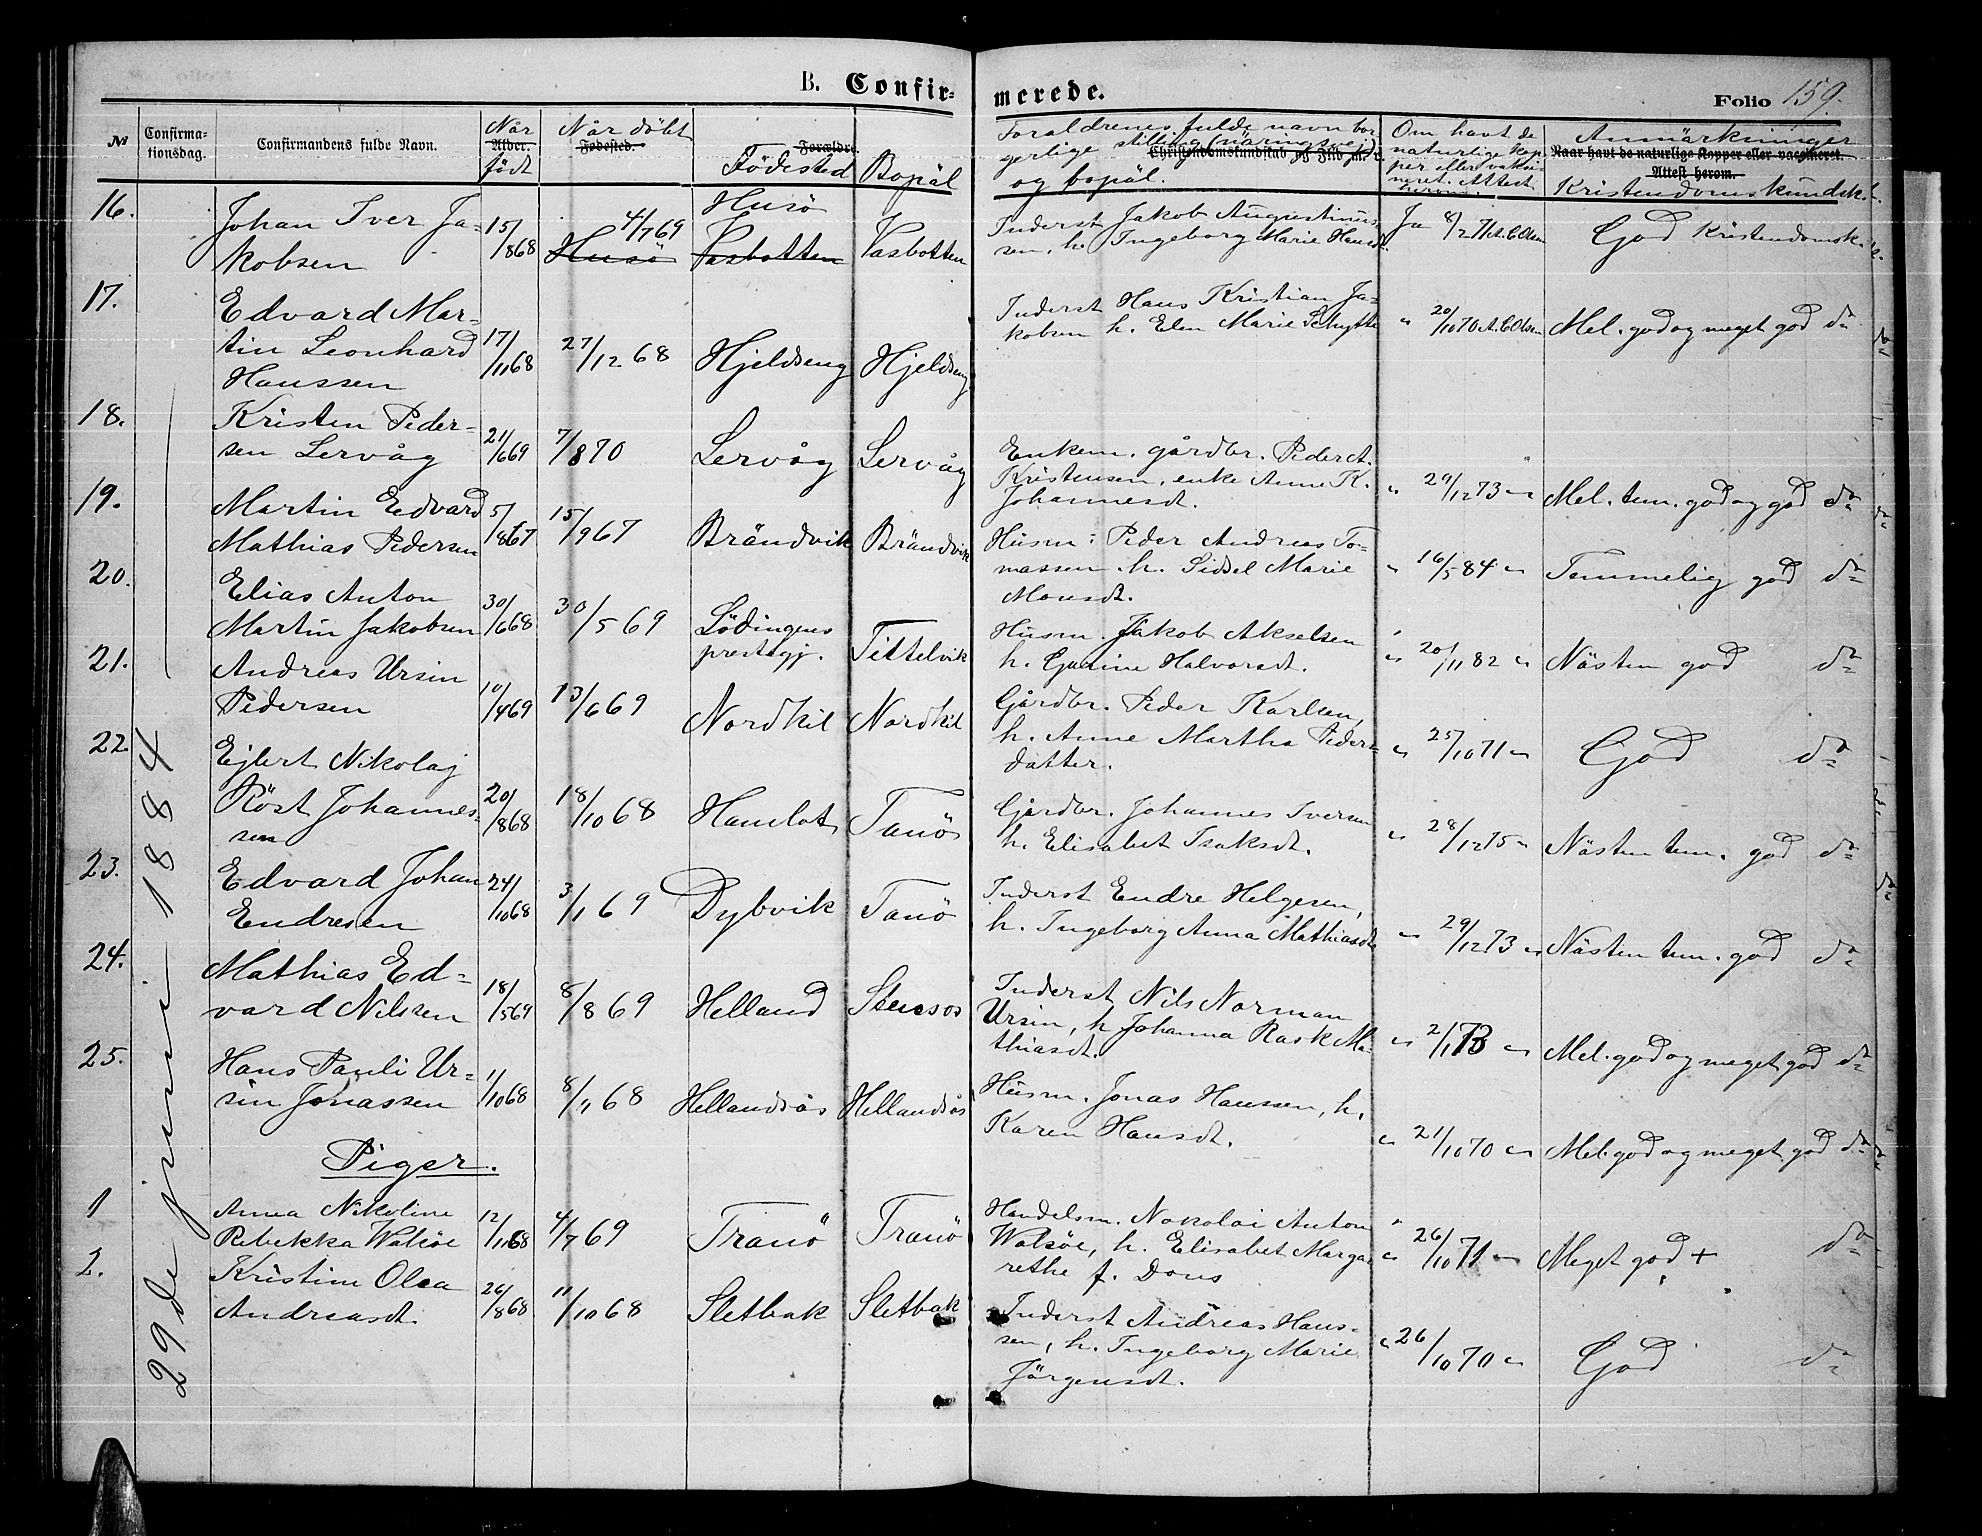 B. Confir- merede.
Folio 159.
№ Confirma-tionsdag. Confirmandens fulde Navn. Når Alder. født Når döbt Fødested. Forældre Födested Bopäl Foraldrenes fulde navn bor-gerlige stilling (näringsvei) og bopäl. Om havt de naturlige kop-per eller vaksi-neret. Attest Anmärkninger Naar havt de naturlige Kopper eller vaccineret. Attest herom. Kristendomskundsk.
29de juni 1884
16. Johan Iver Ja-
kobsen 15/868 4/769 Husö Husö Vasbotten Vasbotten Inderst Jakob Augustinus-
sen, h. Ingeborg Marie Hansdt. Ja 8/271 A. C. Olsen God Kristendomsk.
17. Edvard Mar-
tin Leonhard
Hanssen 17/1168 27/1268 Hjeldseng Hjeldseng Inderst Hans Kristian Ja-
kobsen h. Elen Marie Schytte " 20/1070 A. C. Olsen Mel. god og meget god do
18. Kristen Peder-
sen Lervåg 21/669 7/870 Lervåg Lervåg Enkem. gårdbr. Peder A.
Kristensen, enke Anne K.
Johannesdt. " 29/1273 " Mel. tem. god og god do
19. Martin Edvard
Mathias Pedersen 5/867 15/967 Brändvik Brändvik Husm: Peder Andreas To-
massen h. Sidsel Marie
Monsdt. " 16/584 " Temmelig god do
20. Elias Anton
Martin Jakobsen 30/668 30/569 Lödingens
prestegj. Tittelvik Husm. Jakob Akselsen
h. Gurine Halvorsdt. " 20/1182 " Nästen god do
21. Andreas Ursin
Pedersen 10/469 13/669 Nordkil Nordkil Gårdbr. Peder Karlsen,
h. Anne Martha Peders-
datter. " 25/1071 " God do
22. Ejlert Nikolaj
Röst Johannes-
sen 20/868 18/1068 Hamlot Tanö Gårdbr. Johannes Iversen
h. Elisabet Isaksdt. " 28/1275 " Nästen tem. god do
23. Edvard Johan
Endresen 24/1068 3/169 Dybvik Tanö Inderst Endre Helgesen,
h. Ingeborg Anna Mathiasdt. " 29/1273 " Nästen tem. god do
24. Mathias Ed-
vard Nilssen 18/569 8/869 Helland Inderst Nils Norman
Ursin, h. Johanna Rask Ma-
thiasdt. " 2/173 " Mel. god og meget god do
25. Hans Pauli Ur-
sin Jonassen 1/1068 8/1168 Hellandsås Hellandsås Husm. Jonas Hanssen, h.
Karen Hansdt. " 21/1070 " Mel. god og meget god do
Piger.
1 Anna Nikoline
Rebekka Walsöe 12/1168 4/769 Tranö Tranö Handelsm. Nokolai Anton
Walsöe, h. Elisabet Marga-
rethe f. Dons " 26/1071 " Meget god + do
2. Kristine Olea
Andreasdt. 26/868 11/1068 Sletbak Sletbak Inderst Andreas Hans-
sen, h. Ingeborg Marie
Jörgensdt. " 26/1070 " God do